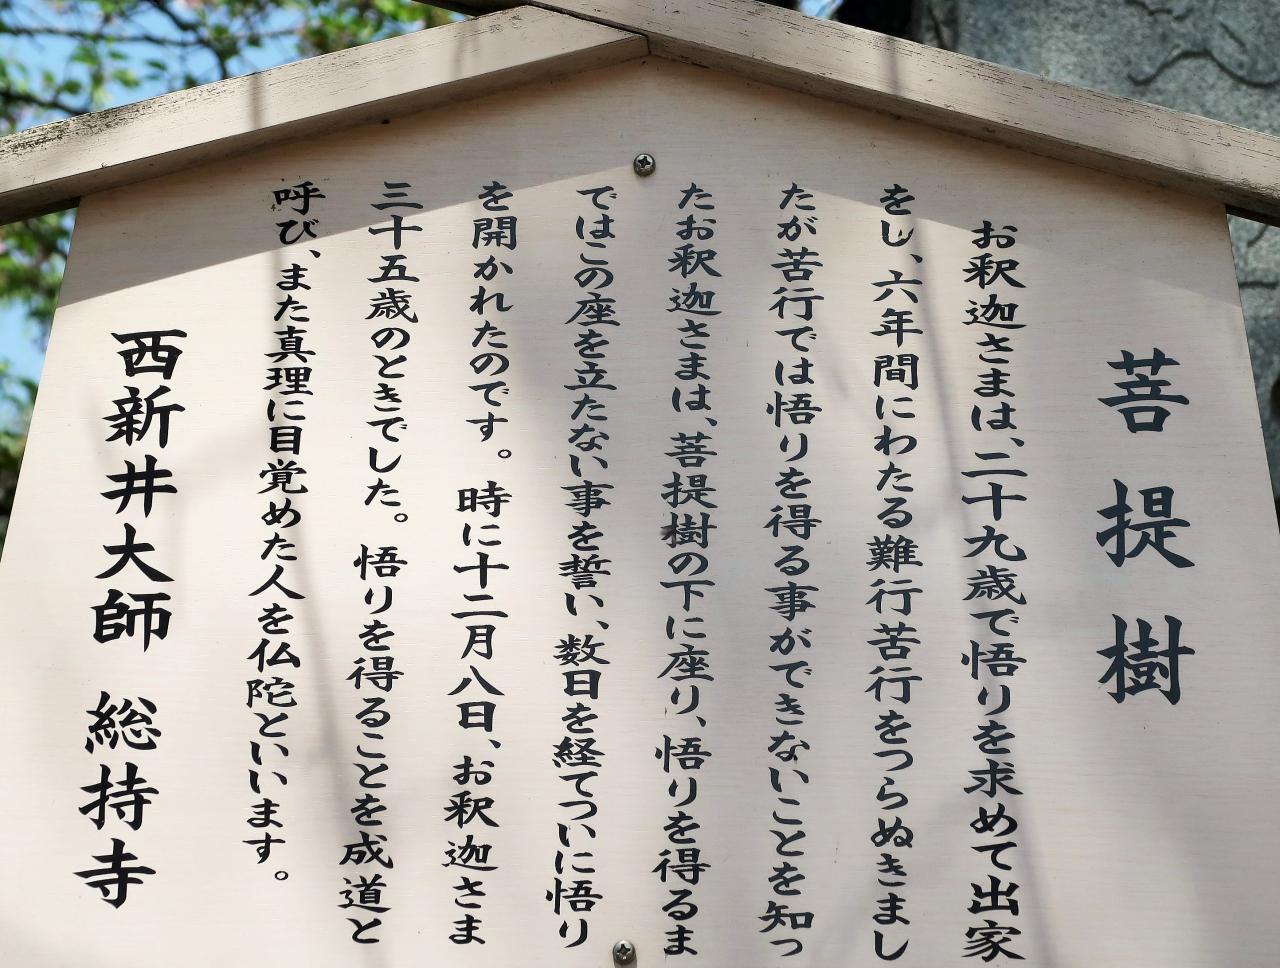 菩提樹
お釈迦さまは、二十九歳で悟りを求めて出家
をし、六年間にわたる難行苦行をつらぬきまし
たが苦行では悟りを得る事ができないことを知っ
たお釈迦さまは、菩提樹の下に座り、悟りを得るま
ではこの座を立たない事を誓い、数日を経てついに悟り
を開かれたのです。時に十二月八日、お釈迦さま
三十五歳のときでした。悟りを得ることを成道と
呼び、また真理に目覚めた人を仏陀といいます。
西新井大師 総持寺